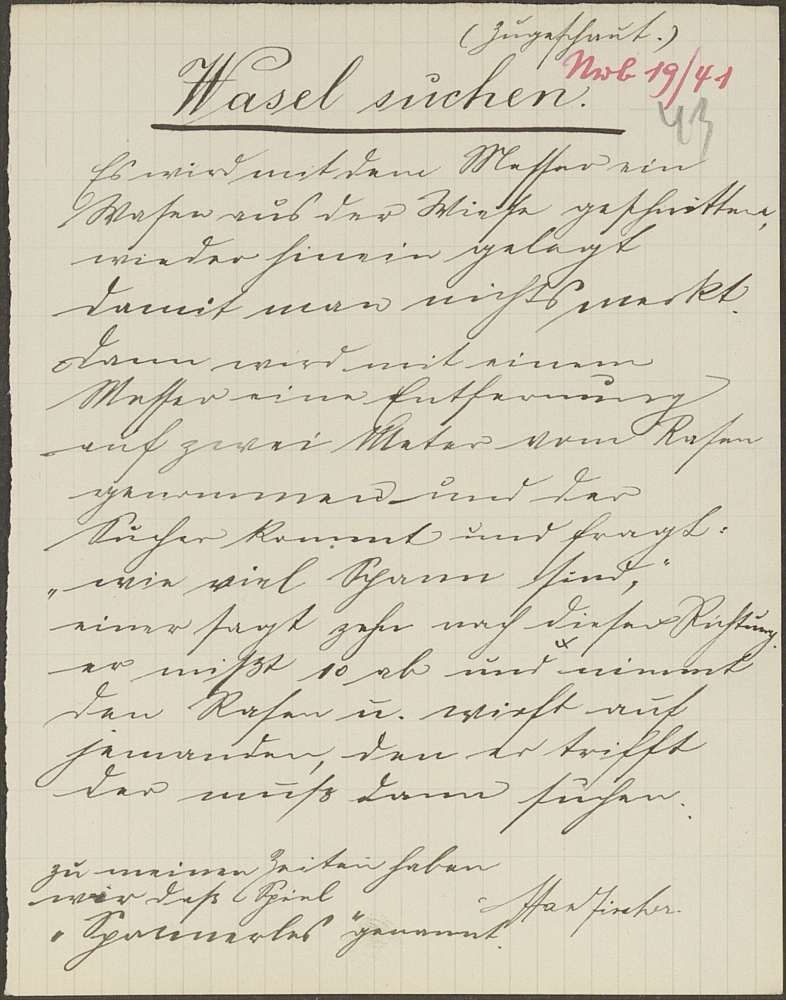 (Zugeschaut.)
Nrb 19/41
Wasel suchen.
43
Es wird mit dem Messer ein
Wasen aus der Wiese geschnitten,
wieder hinein gelegt
damit man nichts merkt.
Dann wird mit einem
Messer eine Entfernung
auf zwei Meter vom Rasen
genommen und der
Sucher kommt und fragt:
"wie viel Spann sind,"
einer sagt zehn nach dieser Richtung.
er mißt 10 ab und x nimmt
den Rasen u. wirft auf
jemanden, den er trifft
der muß dann suchen.
zu meinen Zeiten haben
wir daß Spiel
"Spannerles" genannt.